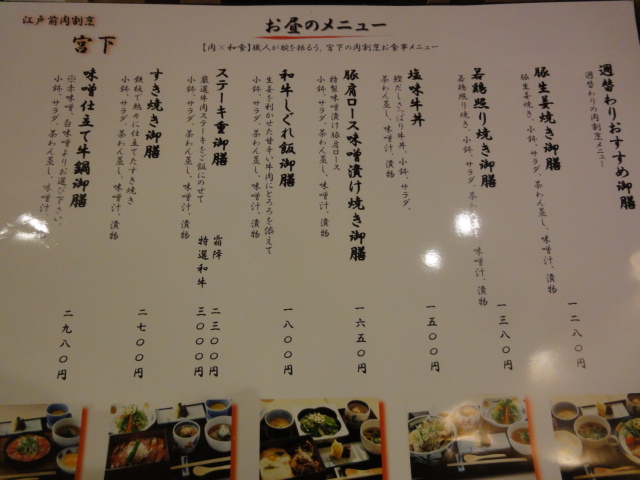 江戸前肉割烹
宮下
お昼のメニュー
【肉×和食】職人が腕を振るう、宮下の肉割烹お食事メニュー
週替わりおすすめ御膳
週替わりの肉割烹メニュー
豚生姜焼き御膳
豚生姜焼き、小鉢、サラダ、茶わん蒸し、味噌汁、漬物
一二八〇円
若鶏照り焼き御膳
若鶏照り焼き、小鉢、サラダ、茶わん蒸し、味噌汁、漬物
一三八〇円
塩味牛丼
鰹だしさっぱり牛丼、小鉢、サラダ、
茶わん蒸し、味噌汁、漬物
一五〇〇円
豚肩ロース味噌漬け焼き御膳
特製味噌漬け豚肩ロース
小鉢、サラダ、茶わん蒸し、味噌汁、漬物
一六五〇円
和牛しぐれ飯御膳
生姜を利かせた甘辛い牛肉にとろろを添えて
小鉢、サラダ、茶わん蒸し、味噌汁、漬物
一八〇〇円
ステーキ重御膳
厳選牛肉ステーキをご飯にのせて
小鉢、サラダ、茶わん蒸し、味噌汁、漬物
霜降 二三〇〇円
特選和牛 三〇〇〇円
すき焼き御膳
鉄板で熱々に仕立てたすき焼き
小鉢、サラダ、茶わん蒸し、味噌汁、漬物
二七〇〇円
味噌仕立て牛鍋御膳
※赤味噌、白味噌よりお選び下さい。
小鉢、サラダ、茶わん蒸し、味噌汁、漬物
二九八〇円